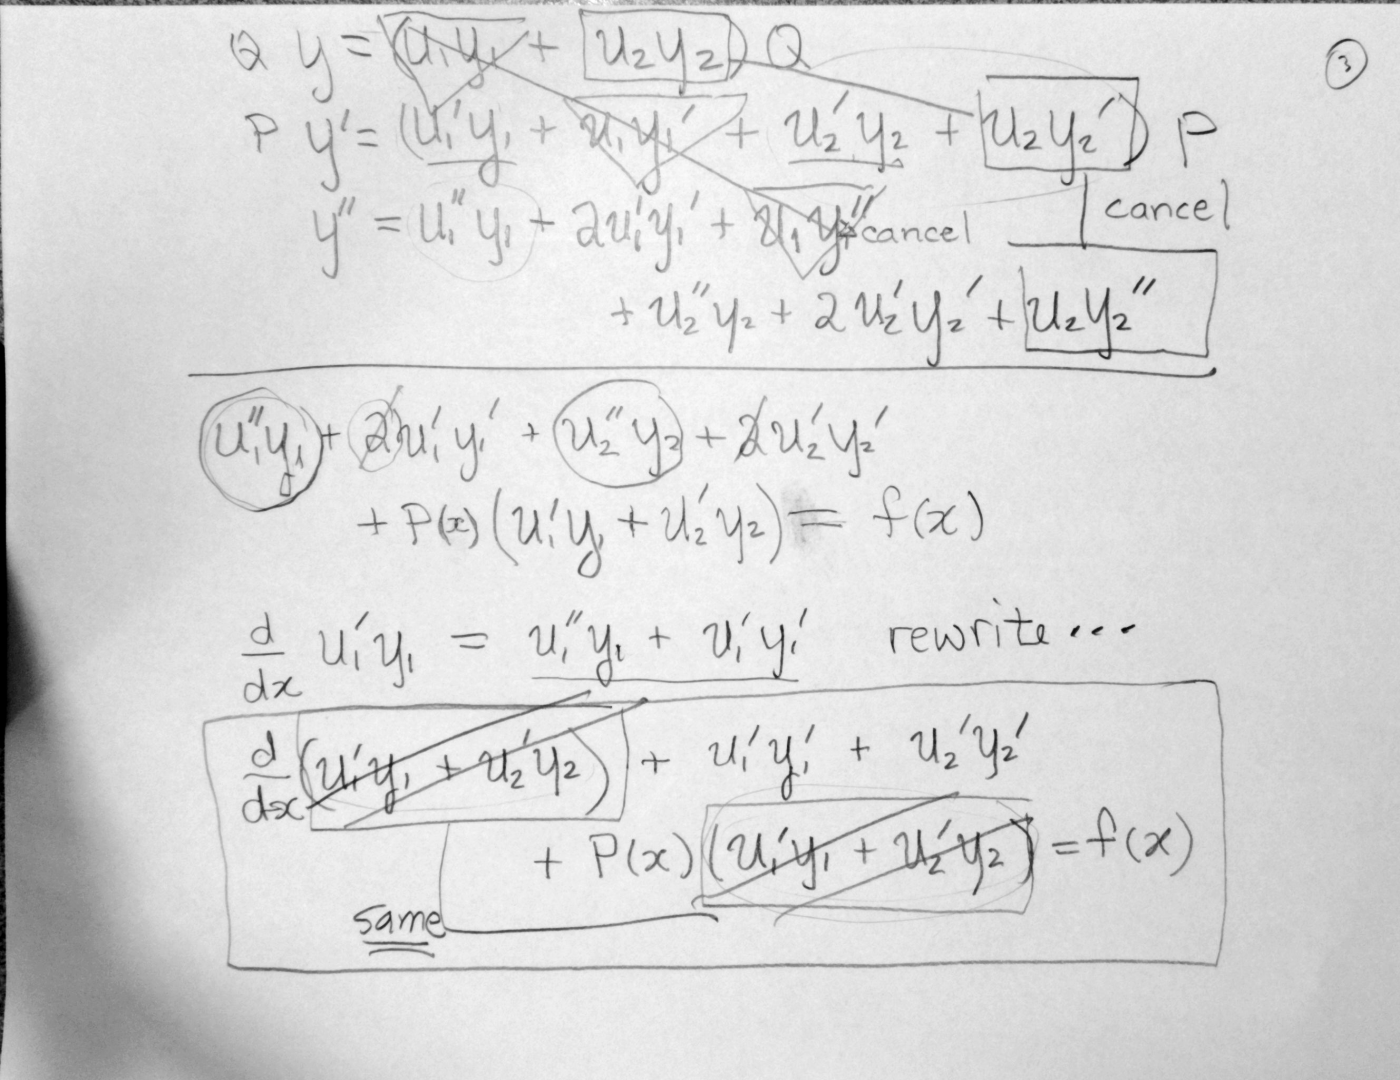 ③
Q y = (u₁y₁ + u₂y₂) Q
P y' = (u₁'y₁ + u₁y₁' + u₂'y₂ + u₂y₂') P
y'' = u₁''y₁ + 2u₁'y₁' + u₁y₁'' cancel
cancel
+ u₂''y₂ + 2u₂'y₂' + u₂y₂''
u₁''y₁ + 2u₁'y₁' + u₂''y₂ + 2u₂'y₂'
+ P(x) (u₁'y₁ + u₂'y₂) = f(x)
d/dx u₁'y₁ = u₁''y₁ + u₁'y₁' rewrite...
d/dx (u₁'y₁ + u₂'y₂) + u₁'y₁' + u₂'y₂'
+ P(x) (u₁'y₁ + u₂'y₂) = f(x)
same